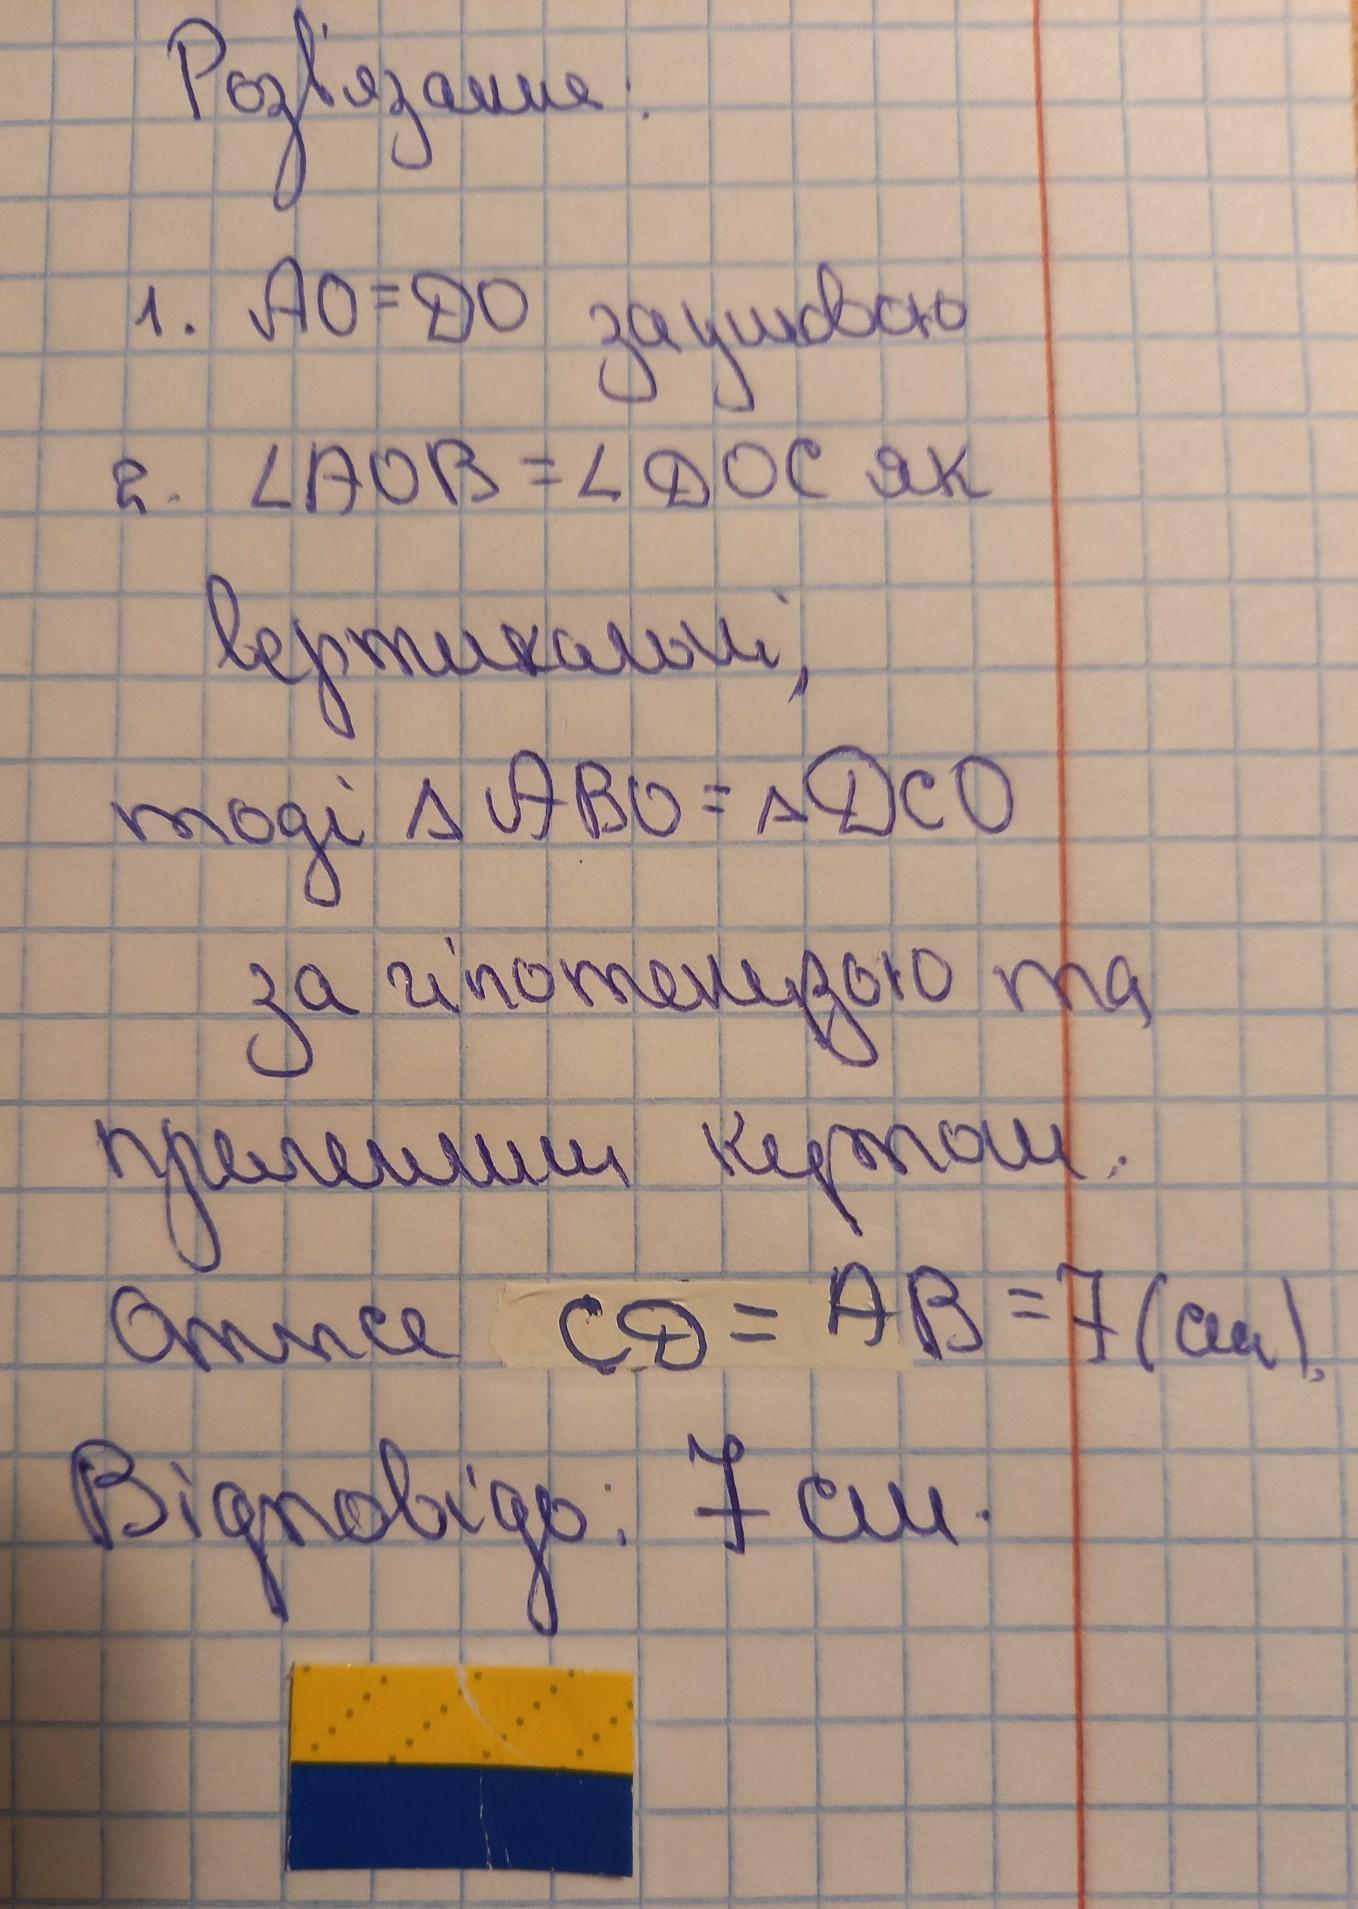 Розв'язання:
1. AO=DO за умовою
2. ∠AOB=∠DOC як
вертикальні,
тоді △ABO=△DCO
за гіпотенузою та
прилеглим кутом.
Отже CD=AB=7(см).
Відповідь: 7 см.